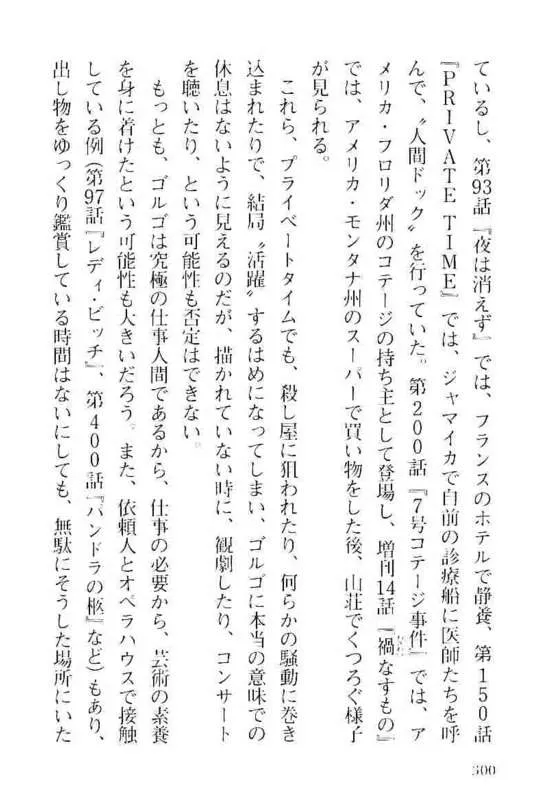 ているし、第93話『夜は消えず』では、フランスのホテルで静養、第150話
『PRIVATE TIME』では、ジャマイカで自前の診療船に医師たちを呼
んで、〝人間ドック〟を行っていた。第200話『7号コテージ事件』では、ア
メリカ・フロリダ州のコテージの持ち主として登場し、増刊14話『禍なすもの』
では、アメリカ・モンタナ州のスーパーで買い物をした後、山荘でくつろぐ様子
が見られる。
これら、プライベートタイムでも、殺し屋に狙われたり、何らかの騒動に巻き
込まれたりで、結局〝活躍〟するはめになってしまい、ゴルゴに本当の意味での
休息はないように見えるのだが、描かれていない時に、観劇したり、コンサート
を聴いたり、という可能性も否定はできない。
もっとも、ゴルゴは究極の仕事人間であるから、仕事の必要から、芸術の素養
を身に着けたという可能性も大きいだろう。また、依頼人とオペラハウスで接触
している例(第97話『レディ・ビッチ』、第400話『パンドラの柩』など)もあり、
出し物をゆっくり鑑賞している時間はないにしても、無駄にそうした場所にいた
300